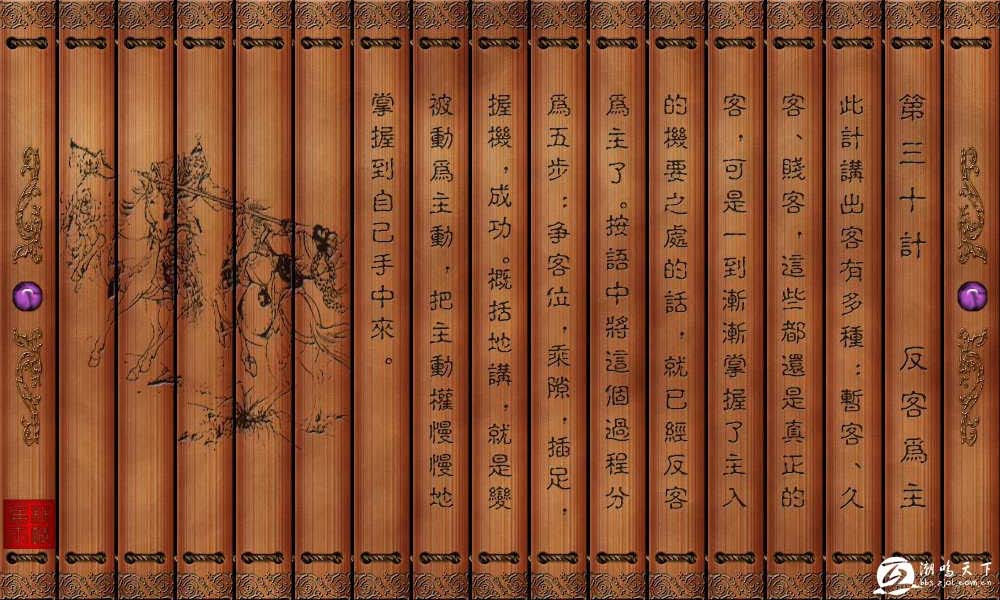 第三十計 反客爲主
此計講出客有多種：暫客、久
客、賤客，這些都還是真正的
客，可是一到漸漸掌握了主入
的機要之處的話，就已經反客
爲主了。按語中將這個過程分
爲五步：争客位，乘隙，插足，
握機，成功。概括地講，就是變
被動爲主動，把主動權慢慢地
掌握到自己手中來。
潮鳴天下
bbs.zjol.com.cn